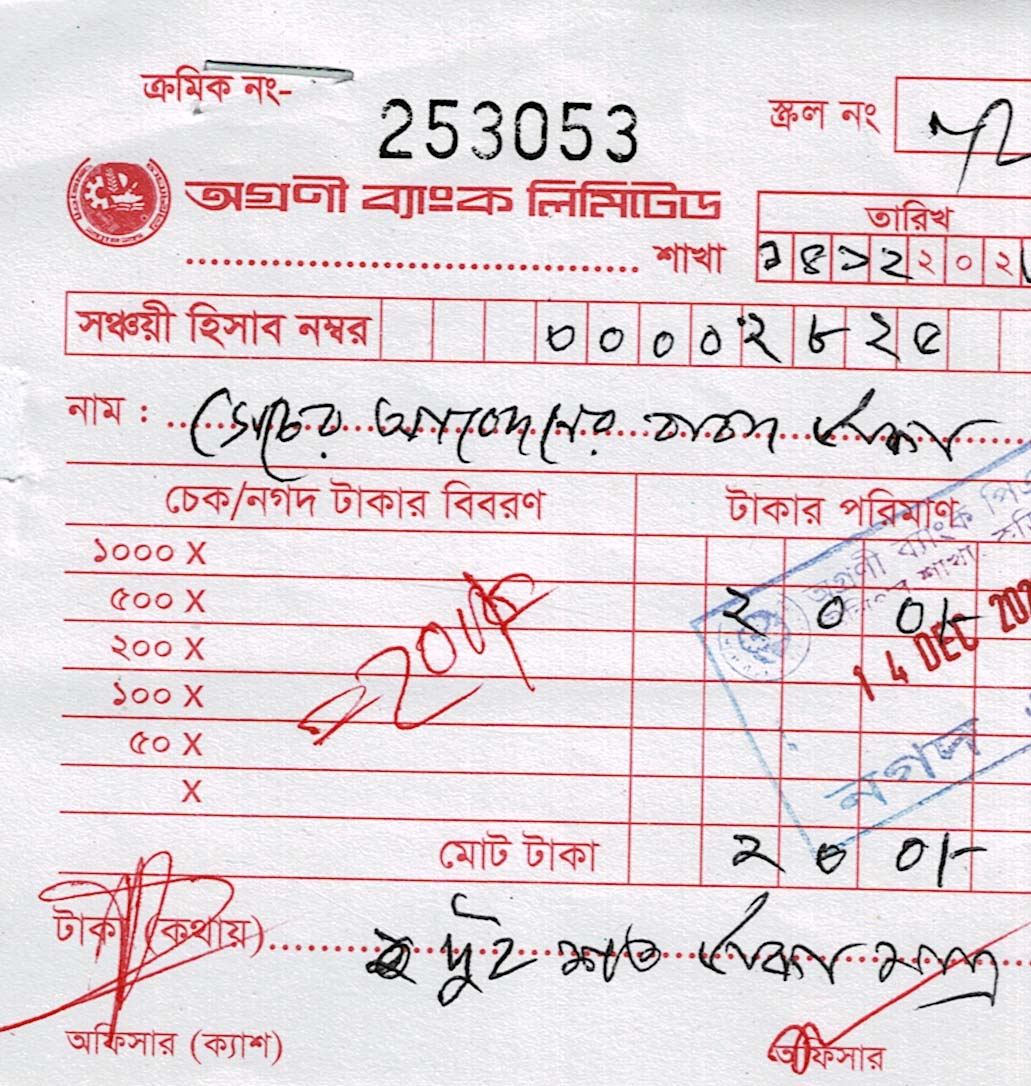 ক্রমিক নং-
253053
স্ক্রল নং
অগ্রণী ব্যাংক লিমিটেড
তারিখ
শাখা
১৪১২২০২
সঞ্চয়ী হিসাব নম্বর ০০০০২৮২৫
নাম : আবেদনের বাবদ টাকা
চেক/নগদ টাকার বিবরণ টাকার পরিমাণ
১০০০ X
৫০০ X ২০০/-
২০০ X
১০০ X
৫০ X
X
অগ্রণী ব্যাংক
শাখা
14 DEC 202
নগদ
মোট টাকা ২০০/-
টাকা (কথায়) দুই শত টাকা মাত্র
অফিসার (ক্যাশ) অফিসার